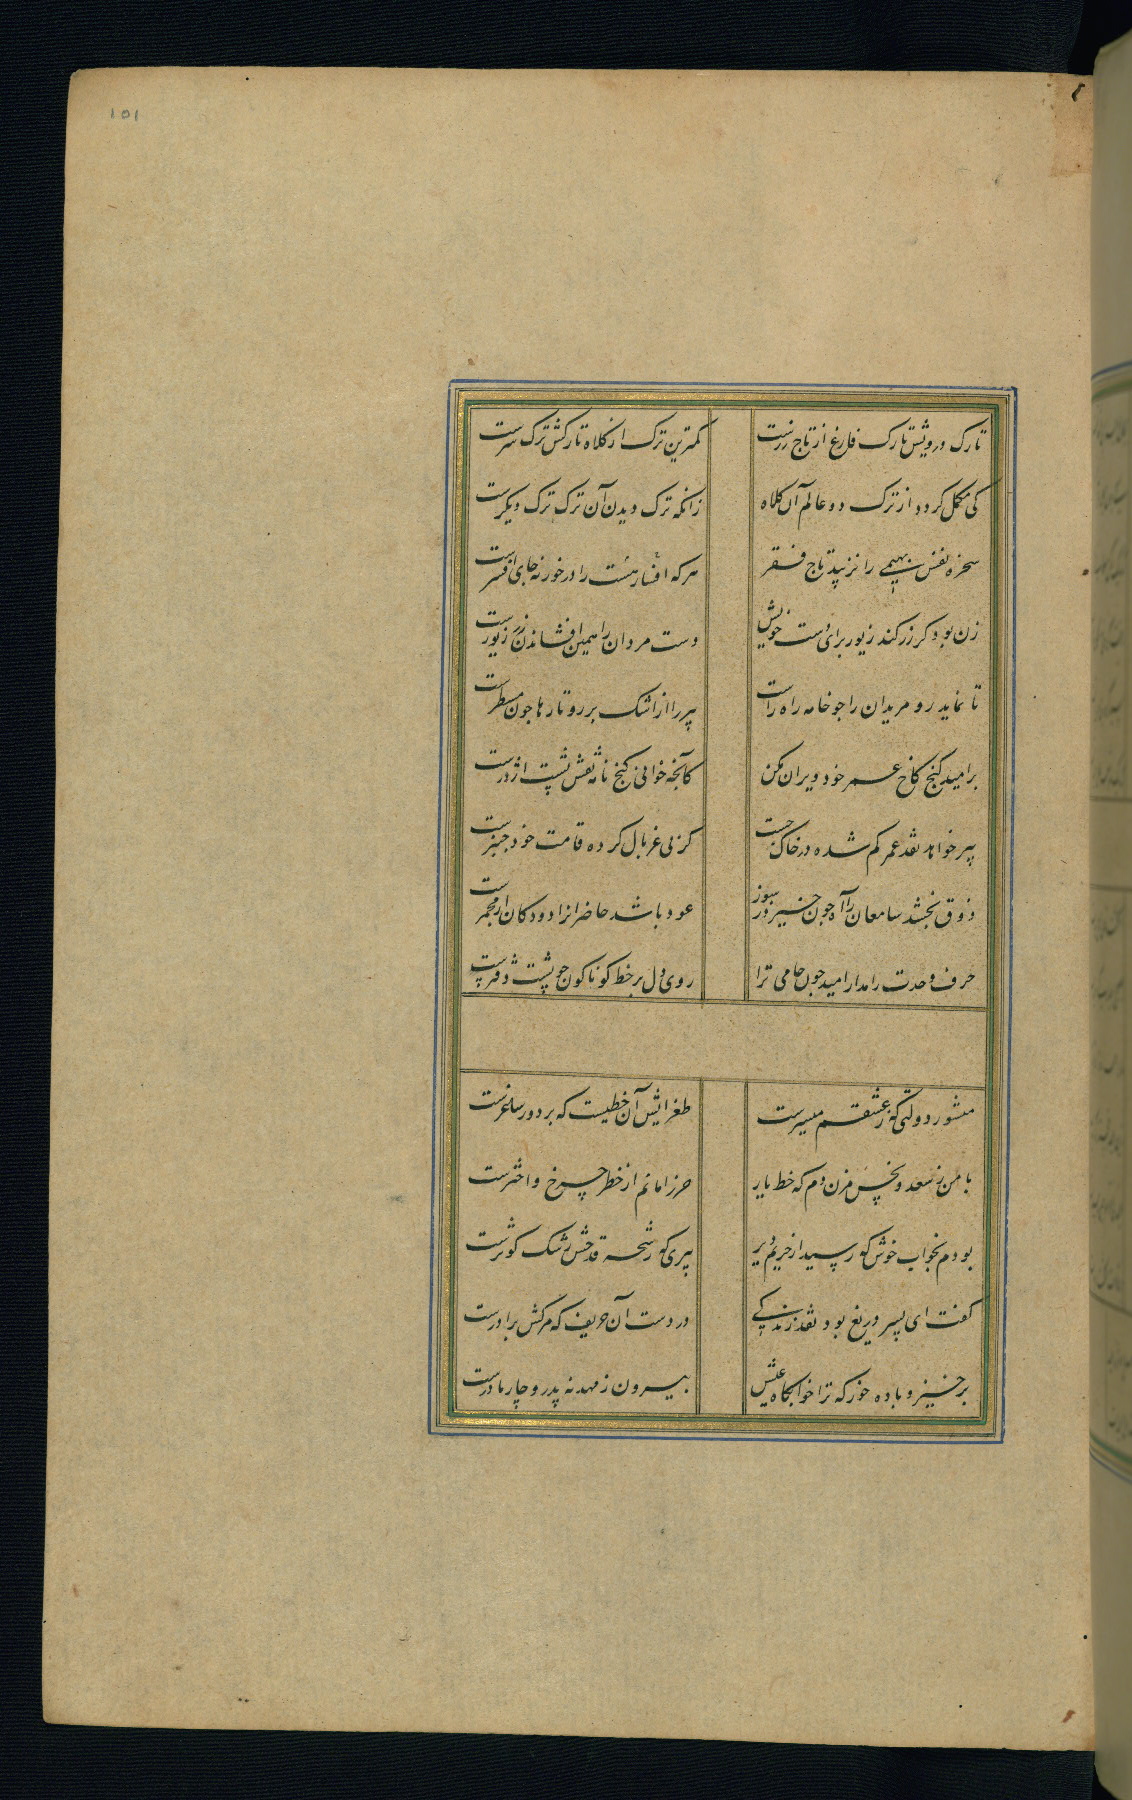 ١٥١
تارک درویش تارک فارغ از تاج زرست
کمترین ترک از کلاه تارکش ترک سرست
کی مکمل کردد از ترک دو عالم آن کلاه
زانکه ترک دیدن آن ترک ترک دیکرست
سخره نفس بهیمی را نزیبد تاج فقر
هرکه افسار بست را درخور نه جای افسرست
زن بود کر زر کند زیور برای دست خویش
دست مردان را همین افشاندن زر زیورست
تا نماید رو مریدان را جو خامه راه راست
پیر را از اشک بر رو تارها جون مسطرست
بر امید کنج کاخ عمر خود ویران مکن
کآنجه خوانی کنج نامه نقش پشت اژدرست
پیر خواهد نقد عمر کم شده در خاک جست
کز پی غربال کرده قامت خود جنبرست
ذوق بخشد سامعان را آه جون خیزد ز سوز
عود باشد حاضرانرا دود کان از مجمرست
حرف وحدت را مدار امید جون جامی ترا
روی دل بر خط کوناکون جو پشت دفترست
منشور دولتی که ز عشقم میسرست
طغرائیش آن خطیست که بر دور ساغرست
با من ز سعد و نحس مزن دم که خط یار
حرز امانم از خطر جرخ و اخترست
بودم بخواب خوش که رسید از حریم دیر
پیری که رشحه قدحش رشک کوثرست
کفت ای پسر دریغ بود نقد زندکی
در دست آن حریف که مرکش برادرست
برخیز و باده خور که ترا خوابکاه عیش
بیرون ز مهد نه پدر و جار مادرست